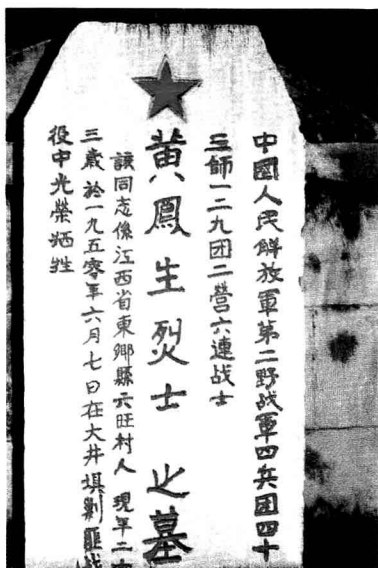 中國人民解放軍第二野战軍四兵团四十
三師一二九团二营六連战士
黄鳳生烈士之墓
該同志係江西省東鄉縣六旺村人 現年二十
三歲於一九五零年六月七日在大井埧剿匪战
役中光榮牺牲